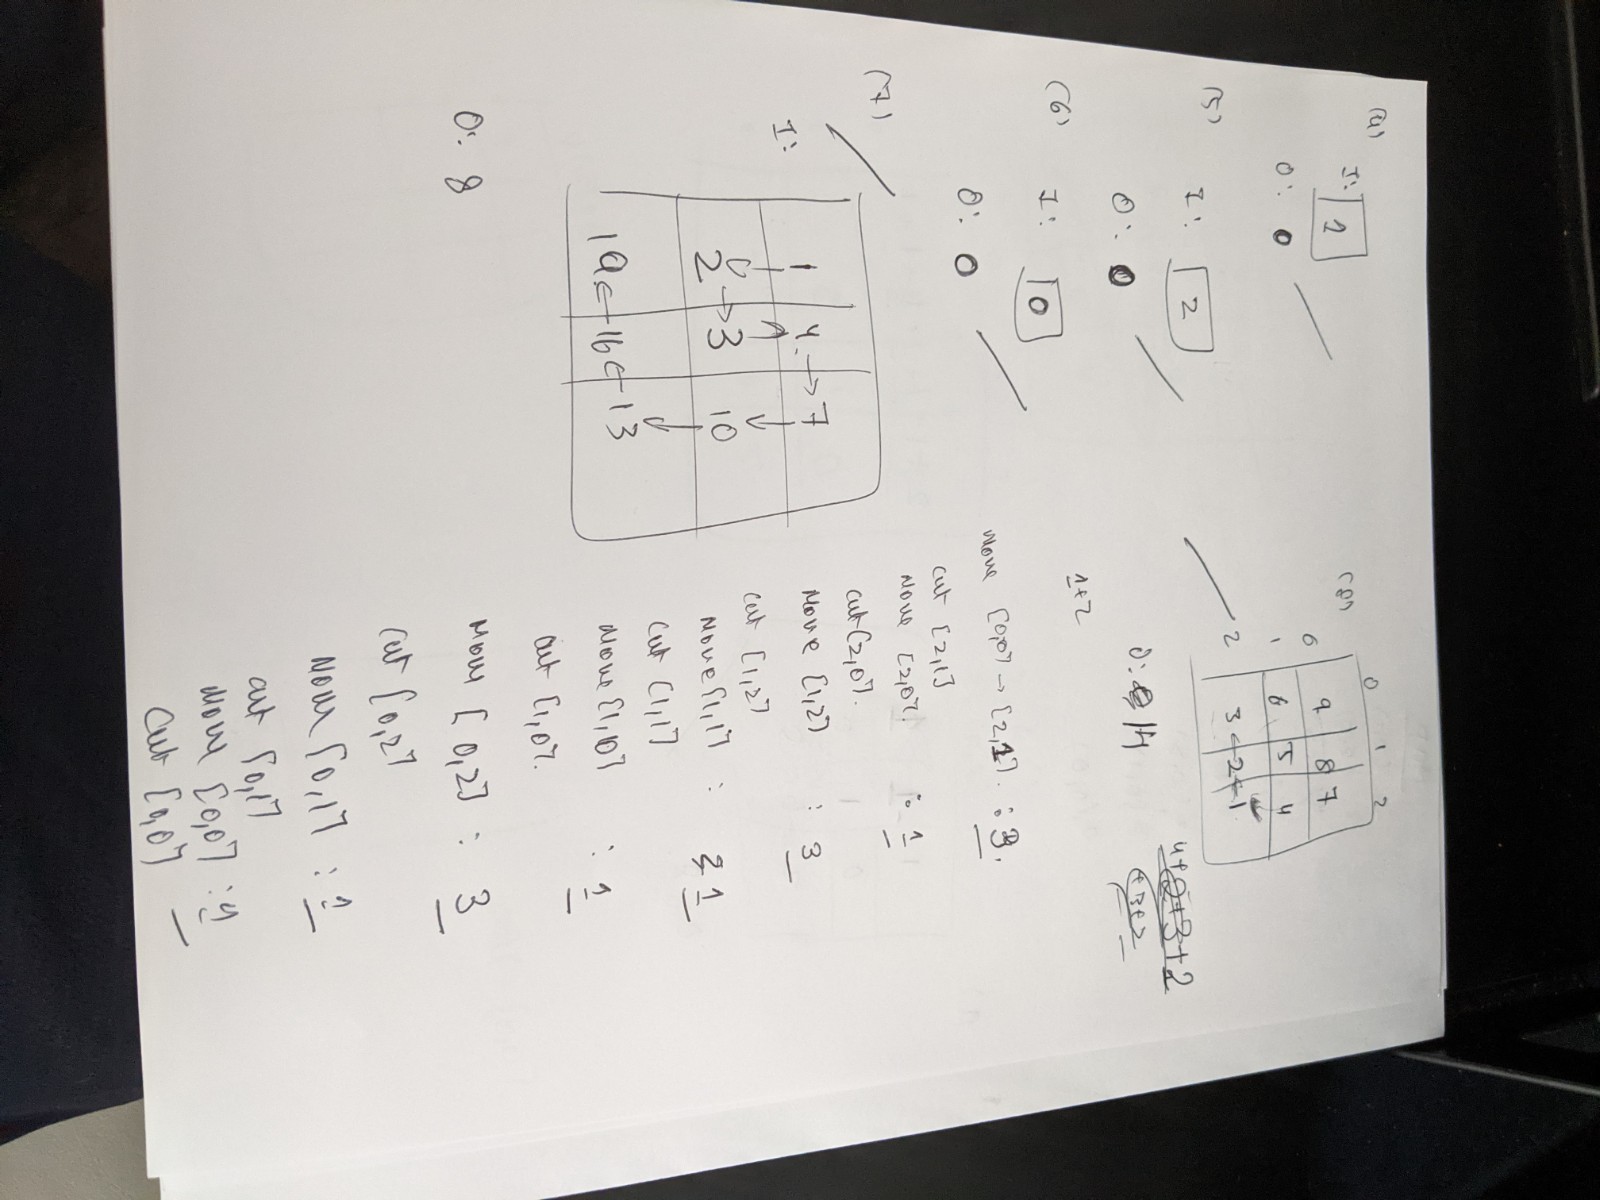 (4)
I: 1
O: 0
(5)
I: 2
O: 0
(6)
I: 0
O: 0
(7)
I:
1 4 → 7
2 → 3 10
19 ← 16 ← 13
O: 8
(8)
0 1 2
0 9 8 7
1 6 5 4
2 3 ← 2 ← 1
O: 14
+3+2
1+2
Move [0,0] → [2,2] : 3.
Cut [2,1]
Move [2,0] : 1
Cut [2,0].
Move [1,2] : 3
Cut [1,2]
Move [1,1] : 1
Cut [1,1]
Move [1,0] : 1
Cut [1,0].
Move [0,2] : 3
Cut [0,2]
Move [0,1] : 1
Cut [0,1]
Move [0,0] : 1
Cut [0,0]